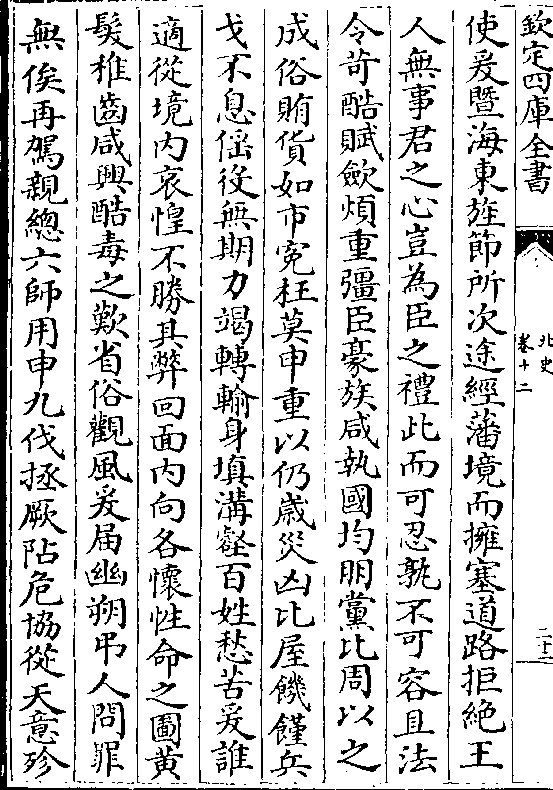 欽定四庫全書
北史
卷十二
二十二
使爰暨海東旌節所次途經藩境而擁塞道路拒絶王
人無事君之心豈為臣之禮此而可忍孰不可容且法
令苛酷賦斂煩重彊臣豪族咸執國均朋黨比周以之
成俗賄貨如市寃枉莫申重以仍歳災凶比屋饑饉兵
戈不息徭役無期力竭轉輸身填溝壑百姓愁苦爰誰
適從境内哀惶不勝其弊回面内向各懷性命之圖黄
髮稚齒咸興酷毒之歎省俗觀風爰届幽朔弔人問罪
無俟再駕親總六師用申九伐拯厥阽危協從天意殄